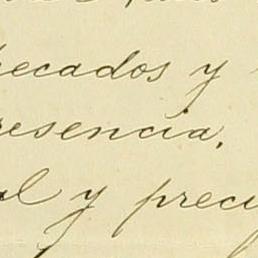 pecados y
resencia,
al y precu